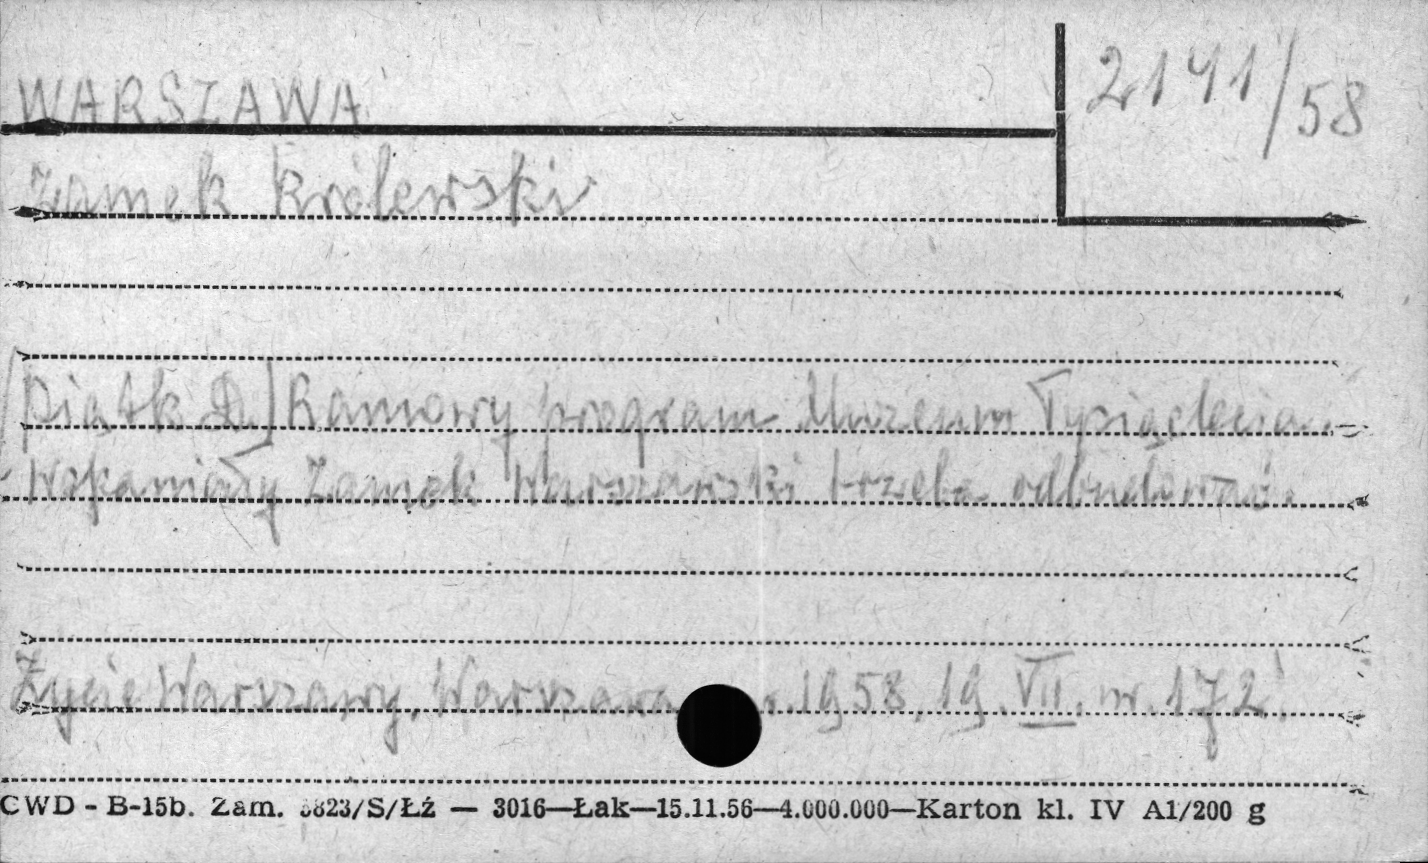 WARSZAWA
2141/58
Zamek Królewski
[Piątk D.] Ramowy program Muzeum Tysiąclecia.
Wspaniały Zamek Warszawski trzeba odbudować.
Życie Warszawy, Warszawa r. 1958, 19. VII. nr. 172.
CWD - B-15b. Zam. 3823/S/Łź — 3016—Łak—15.11.56—4.000.000—Karton kl. IV A1/200 g